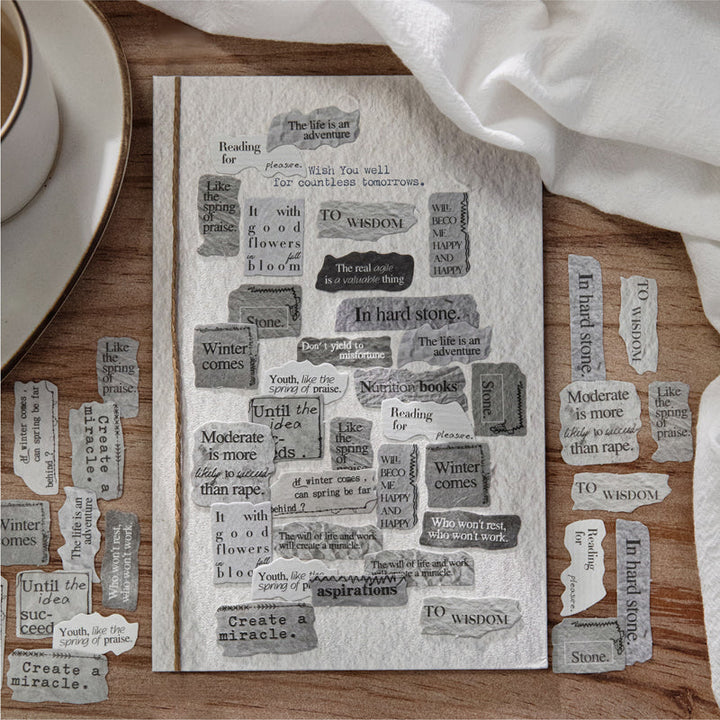 The life is an
adventure
Reading
for pleasure.
Wish You well
for countless tomorrows.
Like
the
spring
of
praise.
It with
good
flowers
in full
bloom
TO WISDOM
WILL
BECO
ME
HAPPY
AND
HAPPY
The real agile
is a valuable thing
Stone.
In hard stone.
Winter
comes
Don't yield to
misfortune
The life is an
adventure
Youth, like the
spring of praise.
Nutrition books
Stone.
Until the
idea
suc-
ds.
Like
the
spring
of
Reading
for
pleasure.
Moderate
is more
likely to succeed
than rape.
WILL
BECO
ME
HAPPY
AND
HAPPY
Winter
comes
df winter comes,
can spring be far
behind?
It with
good
flowers
in full
bloom
Who won't rest,
who won't work.
The will of life and work
will create a miracle.
The will of life and work
will create a miracle.
Youth, like the
spring of p
aspirations
Create a
miracle.
TO WISDOM
Like
the
spring
of
praise.
df winter comes,
can spring be far
behind?
Create a
miracle.
Winter
comes
The life is an
adventure
Who won't rest,
who won't work.
Until the
idea
suc-
ceed
Youth, like the
spring of praise.
Create a
miracle.
In hard stone.
TO WISDOM
Moderate
is more
likely to succeed
than rape.
Like
the
spring
of
praise.
TO WISDOM
Reading
for
pleasure.
In hard stone.
Stone.